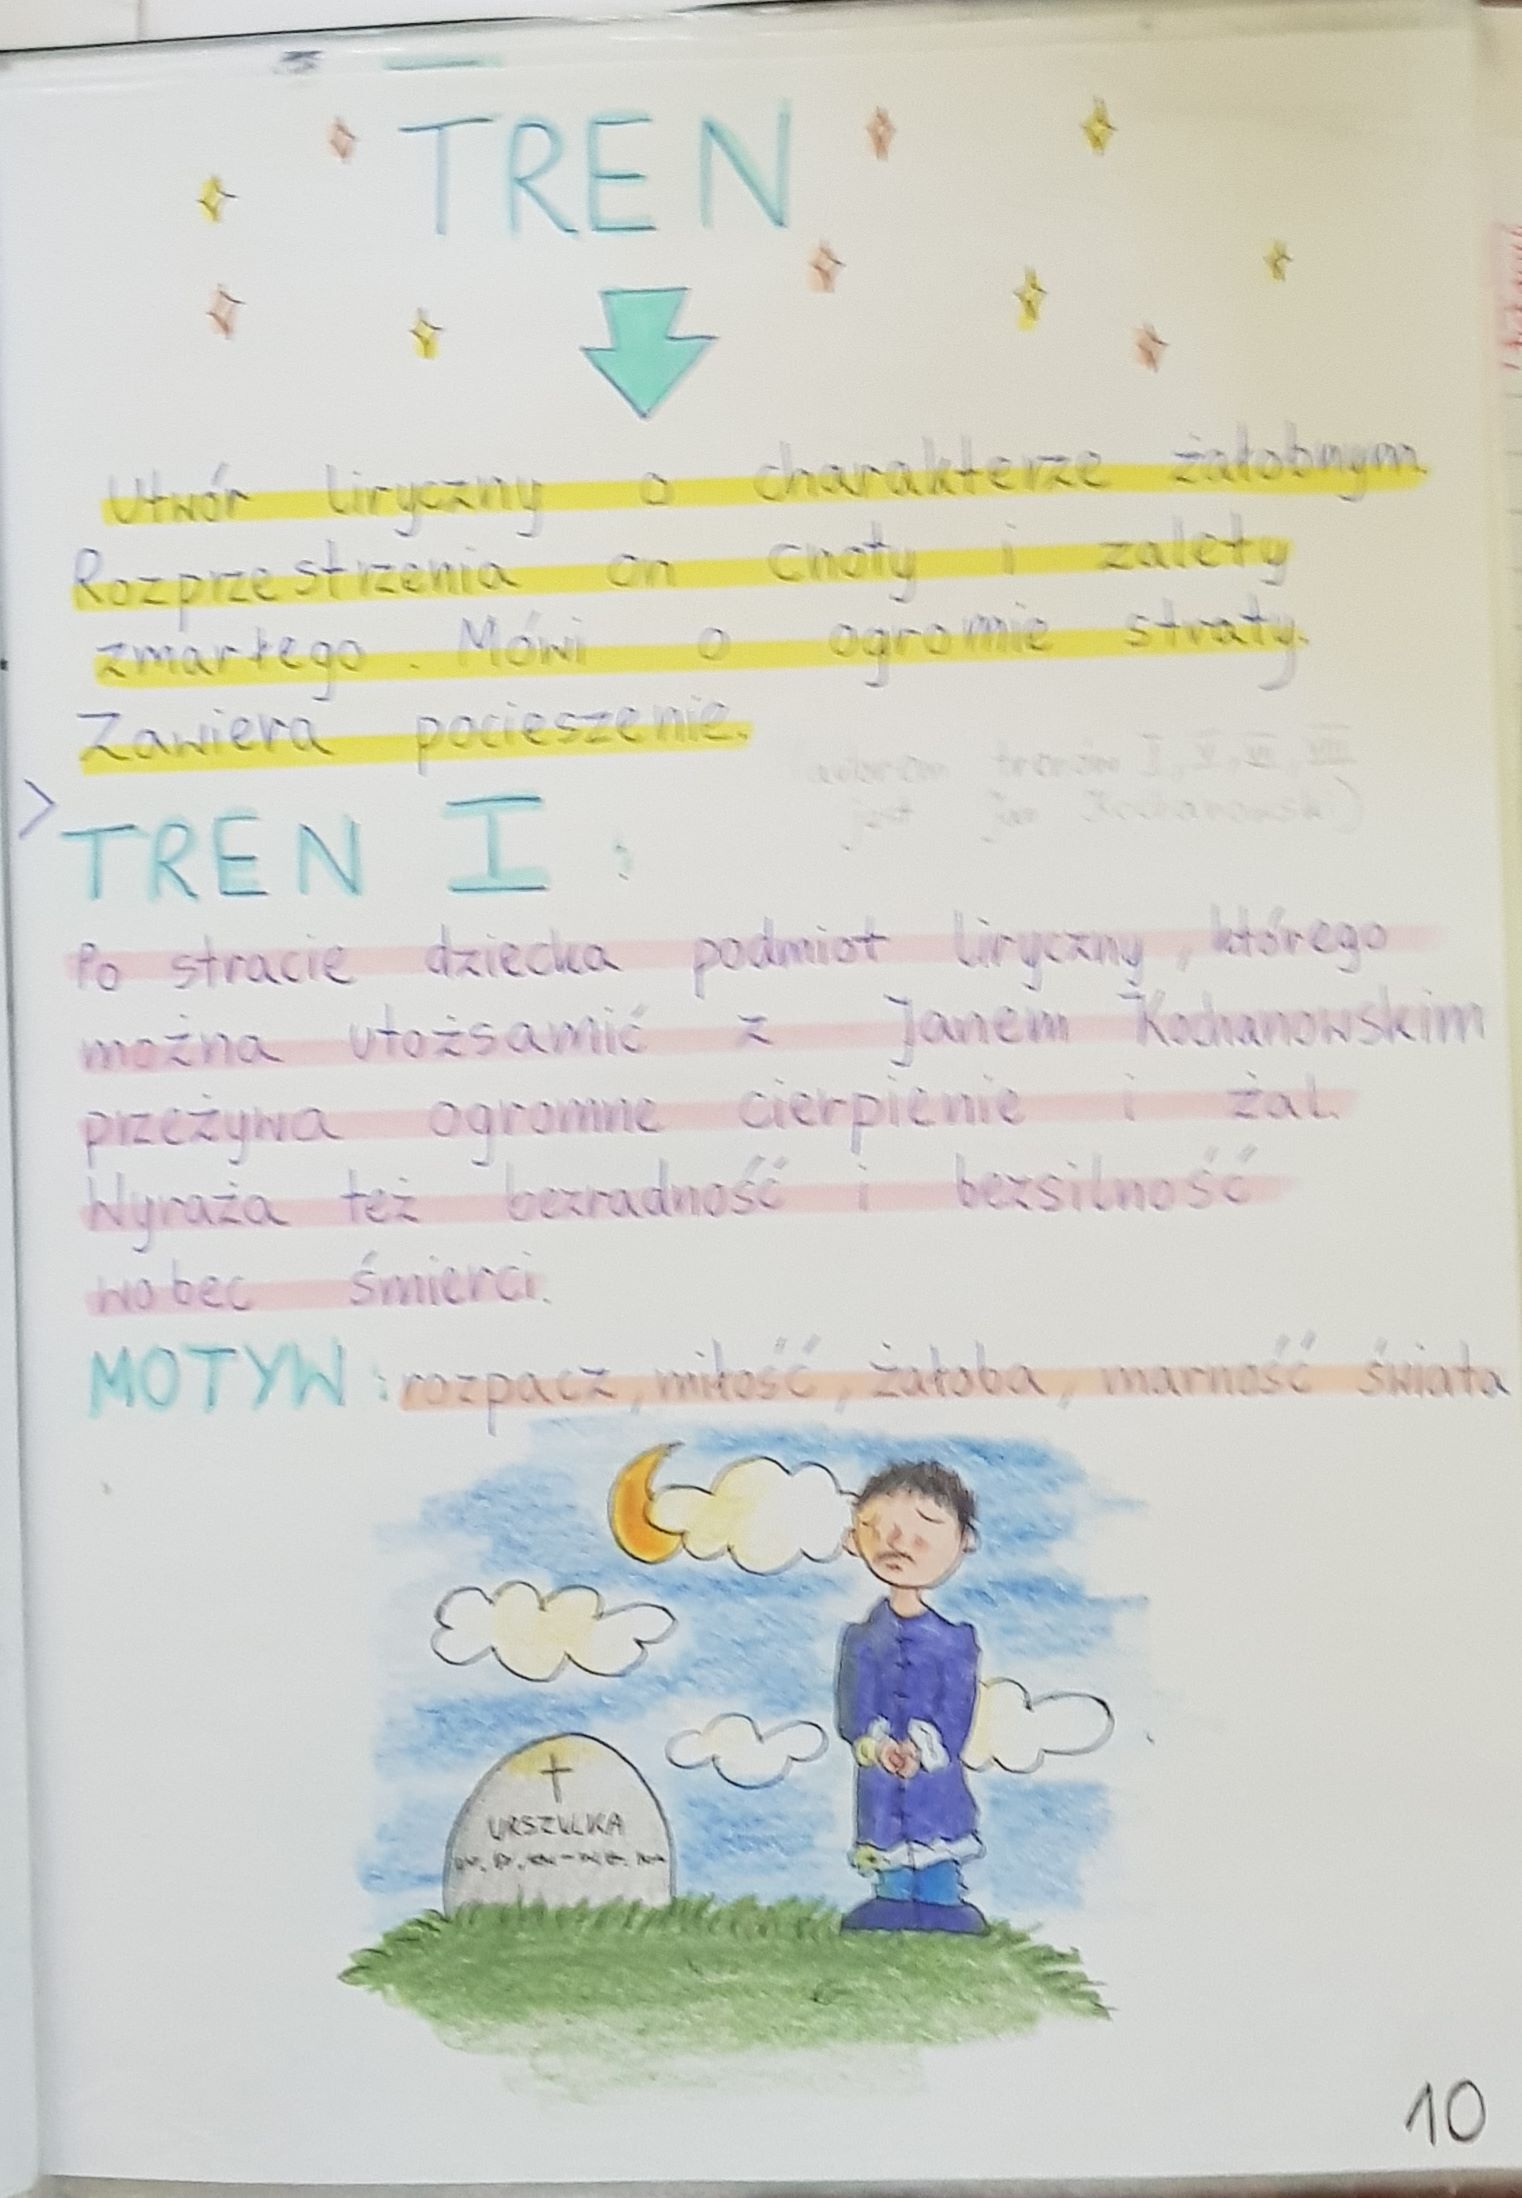 TREN
Utwór liryczny o charakterze żałobnym.
Rozprzestrzenia on cnoty i zalety
zmarłego. Mówi o ogromie straty.
Zawiera pocieszenie.
(autorem trenów I, V, VI, VIII
jest Jan Kochanowski)
TREN I:
Po stracie dziecka podmiot liryczny, którego
można utożsamić z Janem Kochanowskim
przeżywa ogromne cierpienie i żal.
Wyraża też bezradność i bezsilność
wobec śmierci.
MOTYW: rozpacz, miłość, żałoba, marność świata
URSZULKA
10